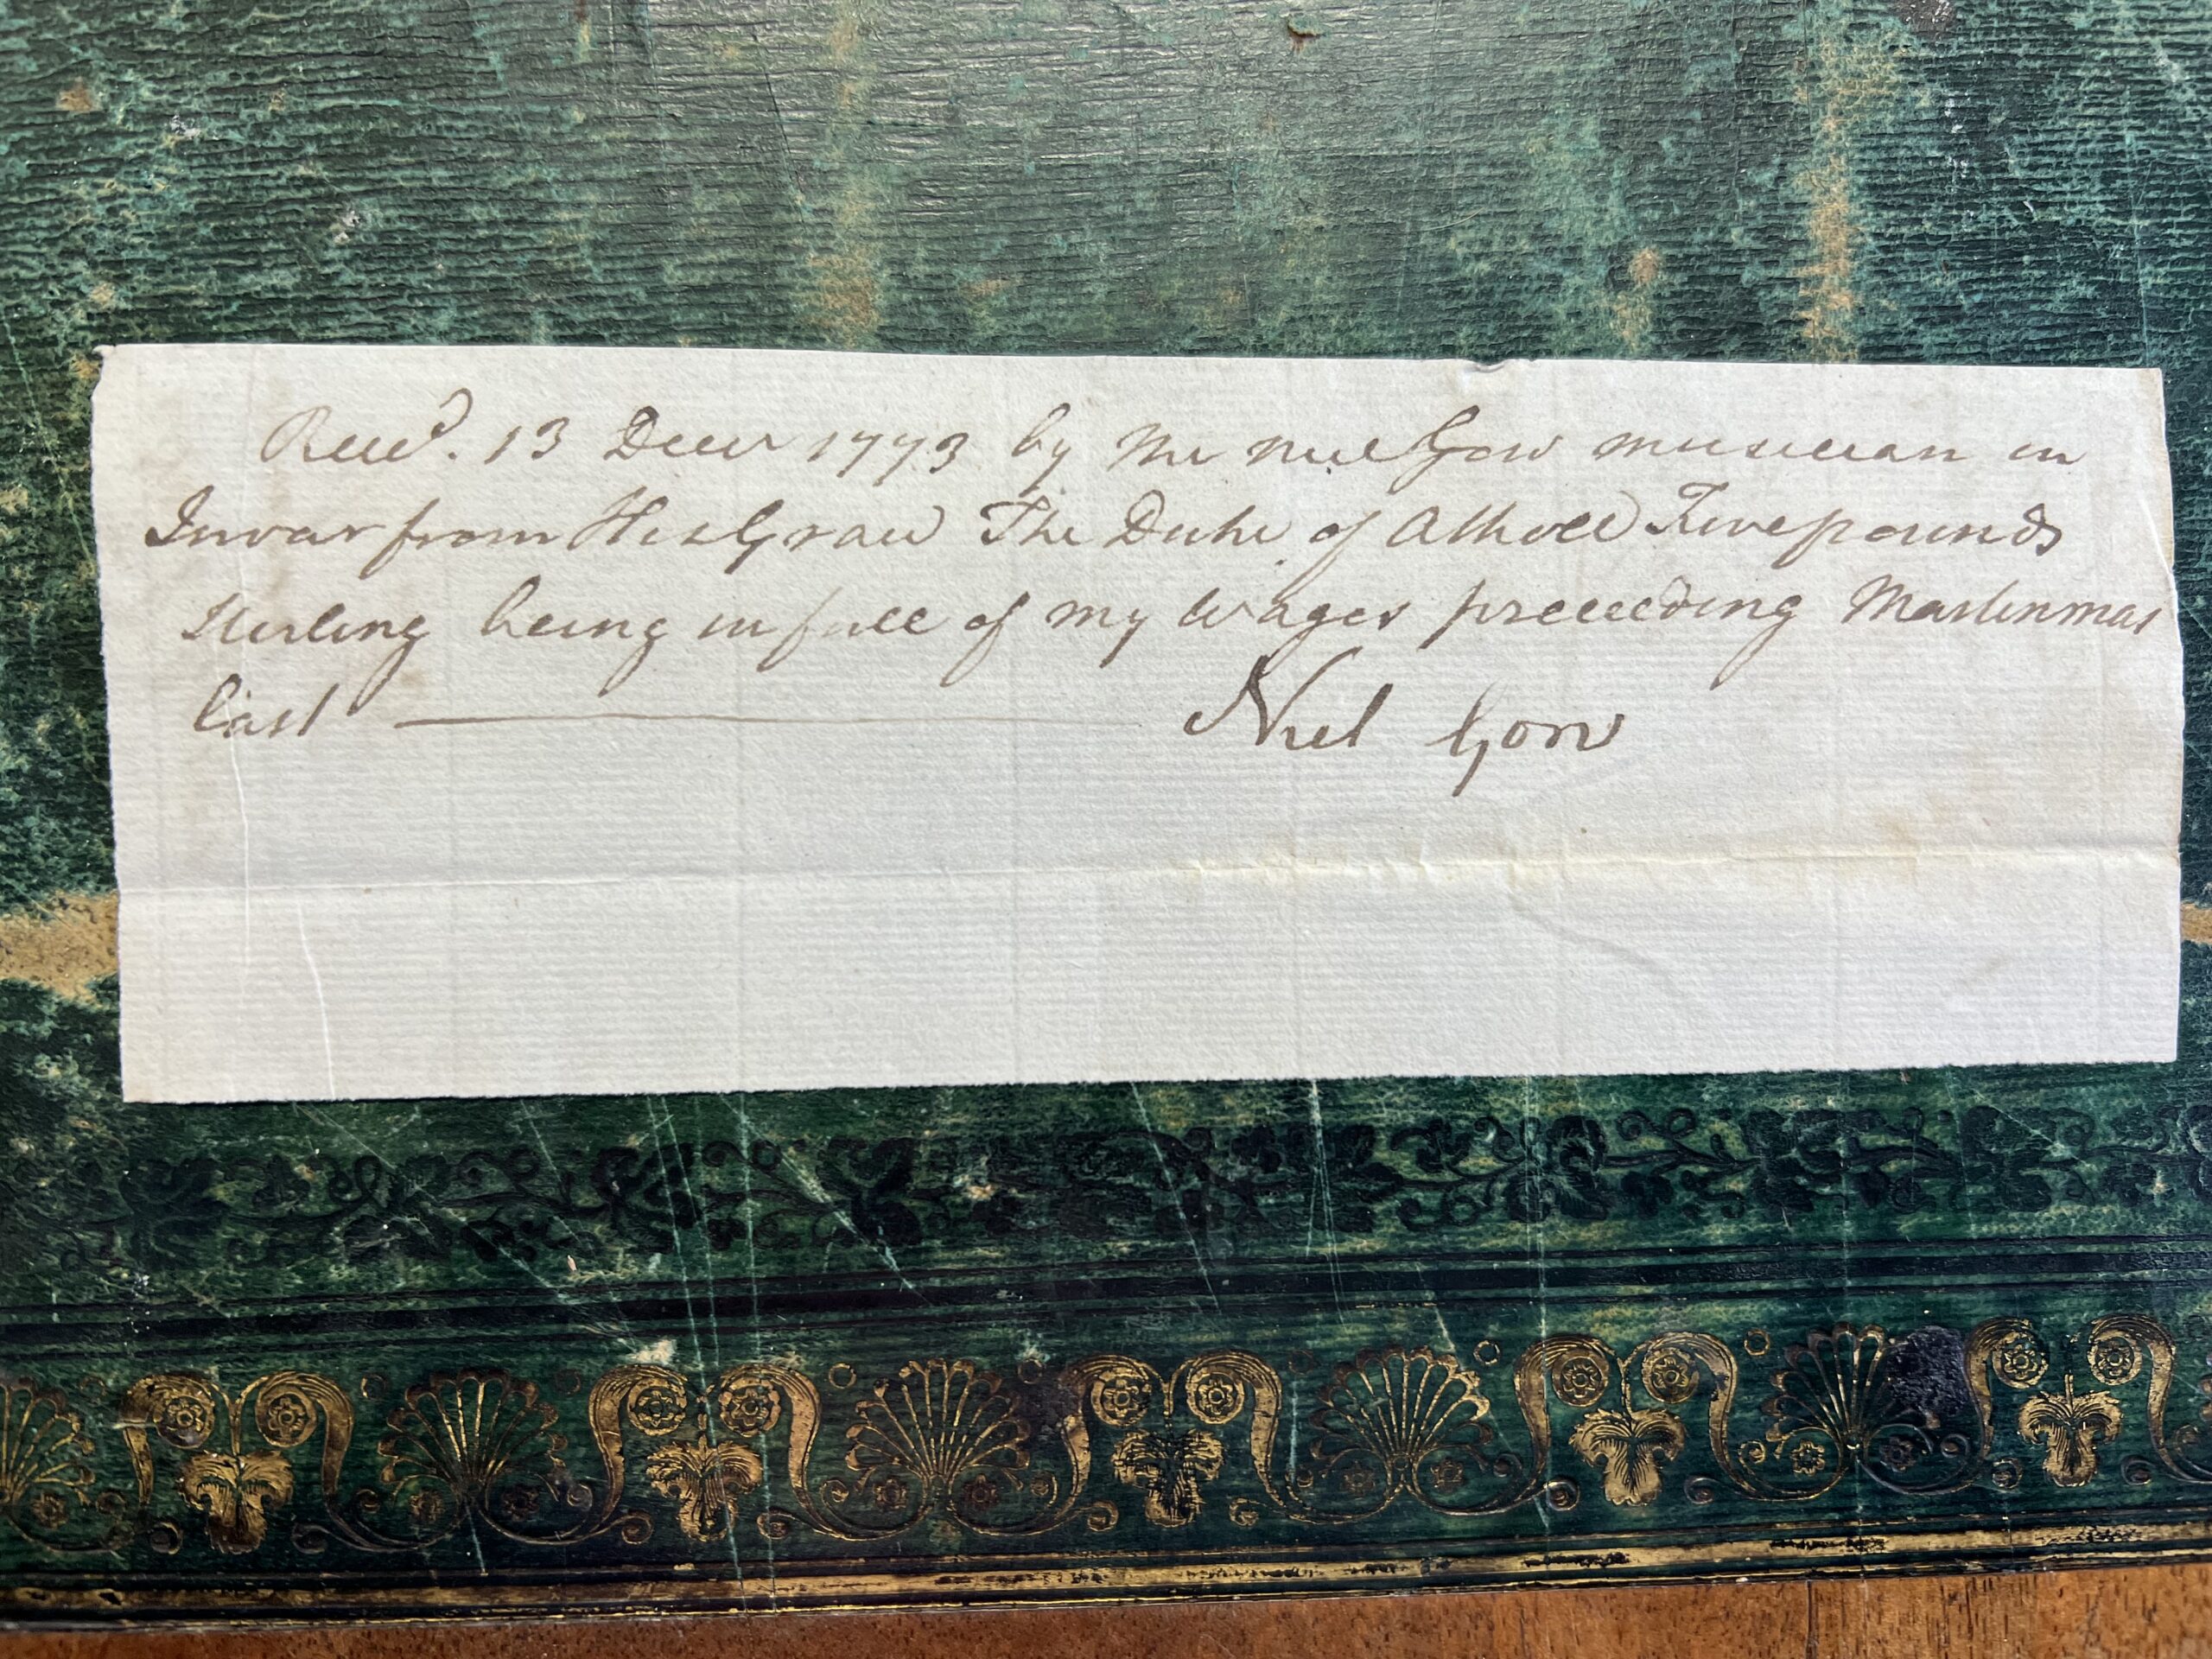 Recd. 13 Decer 1773 by Me Neil Gow musician in
Invar from His Grace The Duke of Atholl Five pounds
Sterling being in full of my Wages preceeding Martinmas
last Niel Gow